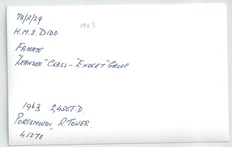 78/2/29 1963
H.M.S DIDO
FRIGATE
"LEANDER" CLASS - "EXOCET" GROUP
1963 2,450T.D
PORTSMOUTH, R. TOWER.
4.12.78